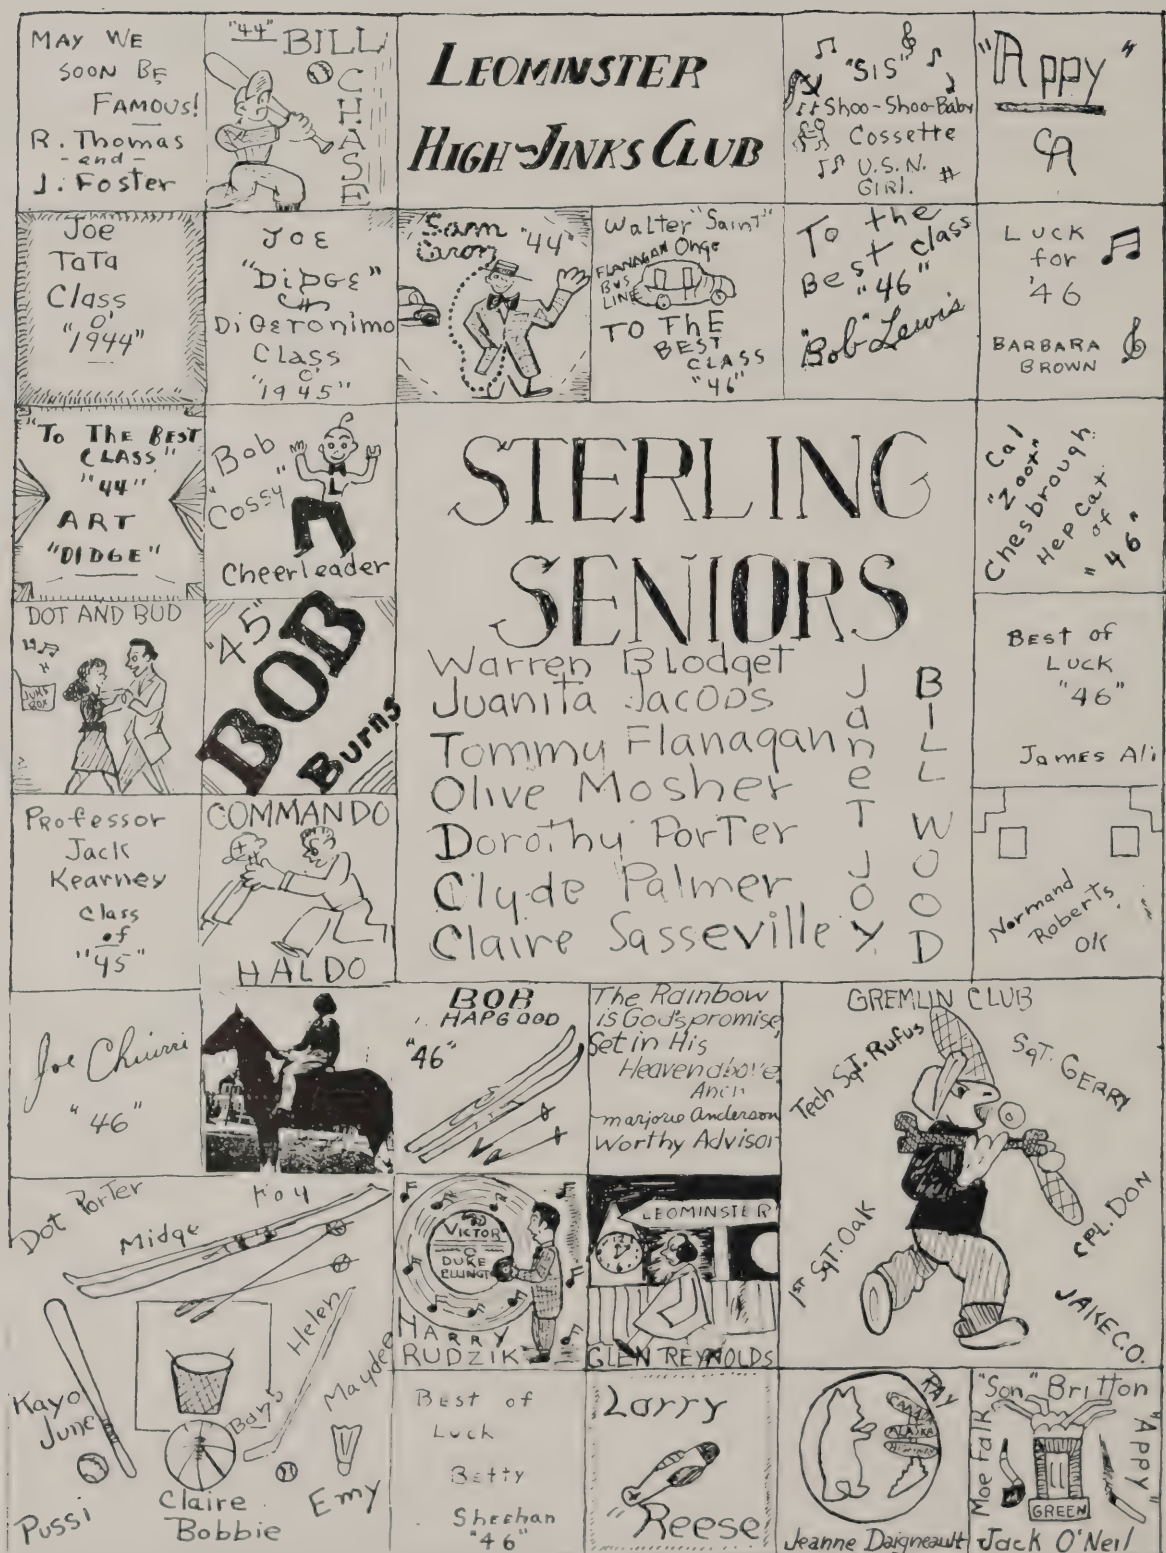 MAY WE
SOON BE
FAMOUS!
R. Thomas
-and-
J. Foster
"44" BILL
CHASE
LEOMINSTER
HIGH-JINKS CLUB
"SIS"
Shoo-Shoo-Baby
Cossette
U.S.N.
GIRL.
"Appy"
CA
Joe
TaTa
Class
O'
"1944"
JOE
"DiDGE"
Di Geronimo
Class
O'
"1945"
Sam
Caron "44"
Walter "Saint"
Onge
FLANAGAN
BUS
LINE
TO THE
BEST
CLASS
"46"
To the
Best class
"46"
"Bob" Lewis
LUCK
for
'46
BARBARA
BROWN
"To THE BEST
CLASS"
"44"
ART
"DIDGE"
"Bob
Cossy"
Cheerleader
STERLING
SENIORS
Warren Blodget
Juanita Jacobs
Tommy Flanagan
Olive Mosher
Dorothy PorTer
Clyde Palmer
Claire Sasseville
JaneT Joy
BILL WOOD
Cal
"Zoox"
Chesbrough
Hep Cat
of
"46"
DOT AND BUD
JUKE
BOX
"45"
BOB
Burns
BEST of
LUCK
"46"
JamES Ali
Professor
Jack
Kearney
Class
of
"45"
COMMANDO
HALDO
Normand
Roberts
OK
Joe Chiurri
"46"
BOB
HAPGOOD
"46"
The Rainbow
is God's promise,
Set in His
Heaven above,
Arch
marjorie Anderson
Worthy Advisor
GREMLIN CLUB
Tech Sgt. Rufus
SgT. GERRY
1st SgT. Oak
CPL. DON
JAKE C.O.
Dot PorTer
Midge
Foy
Helen
Kayo
June
Babs
Maydee
Pussi
Claire
Bobbie
Emy
VICTOR
DUKE
ELLINGT
HARRY
RUDZIK
LEOMINSTER
GLEN REYNOLDS
Best of
Luck
Betty
Sheehan
"46"
Larry
Reese
RAY
CANADA
ALASKA
HIGHWAY
Jeanne Daigneault
"Son" Britton
Moe Falk
"APPY"
GREEN
Jack O'Neil